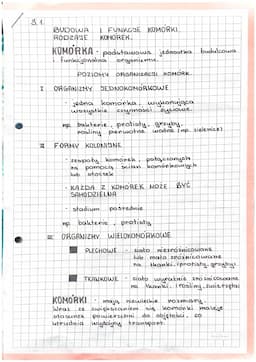 3.1.
BUDOWA I FUNKCJE KOMÓRKI.
RODZAJE KOMÓREK.
KOMÓRKA - podstawowa jednostka budulcowa
i funkcjonalna organizmu.
POZIOMY ORGANIZACJI KOMÓREK
I ORGANIZMY JEDNOKOMÓRKOWE
- jedna komórka, wykonująca
wszystkie czynności życiowe.
np. bakterie, protisty, grzyby,
rośliny pierwotnie wodne (np. zielenice)
II FORMY KOLONIJNE
- zespoły komórek, połączonych
za pomocą ścian komórkowych
lub otoczek
- KAŻDA Z KOMÓREK MOŻE BYĆ
SAMODZIELNA
- stadium pośrednie
np. bakterie, protisty
III ORGANIZMY WIELOKOMÓRKOWE
PLECHOWE - ciało niezróżnicowane
lub mało zróżnicowane
na tkanki (protisty, grzyby)
TKANKOWE - ciało wyraźnie zróżnicowane
na tkanki (rośliny, zwierzęta)
KOMÓRKI - mają niewielkie rozmiary.
Wraz ze zwiększaniem się komórki maleje
stosunek powierzchni do objętości, co
utrudnia wydajny transport.